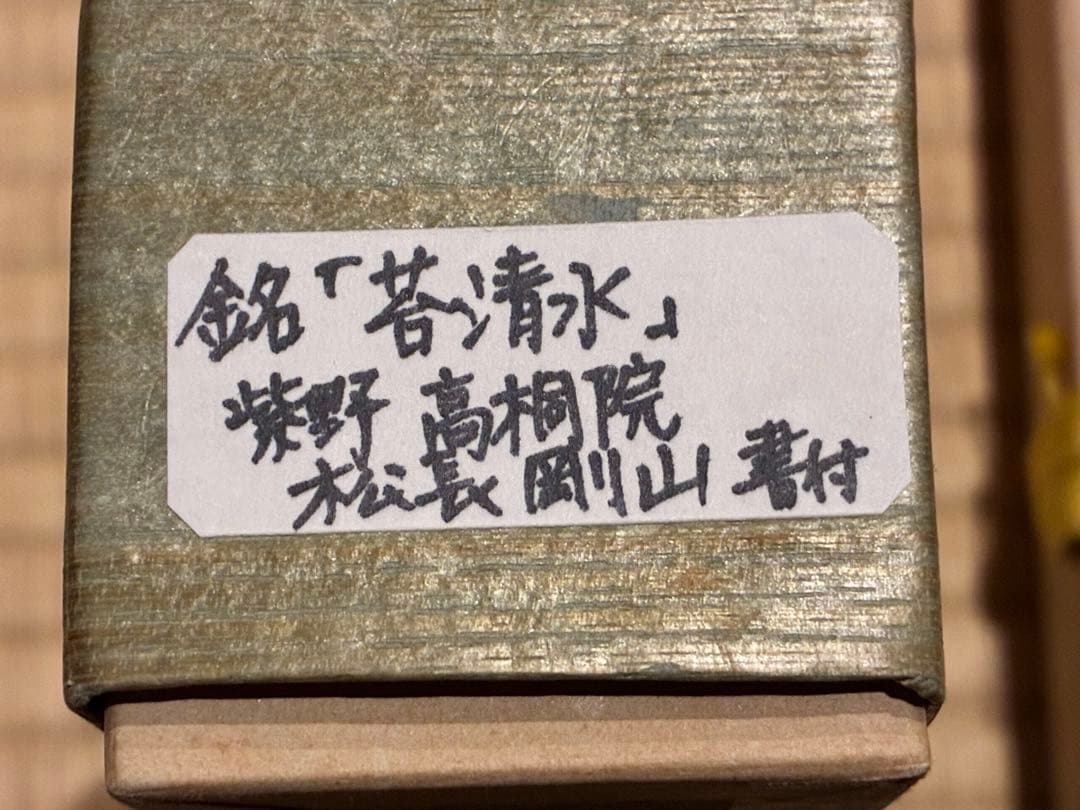 銘「苔清水」
紫野 高桐院
松長 剛山 書付